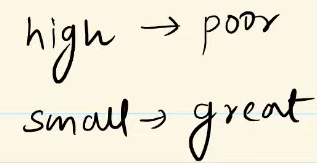 high → poor
small → great